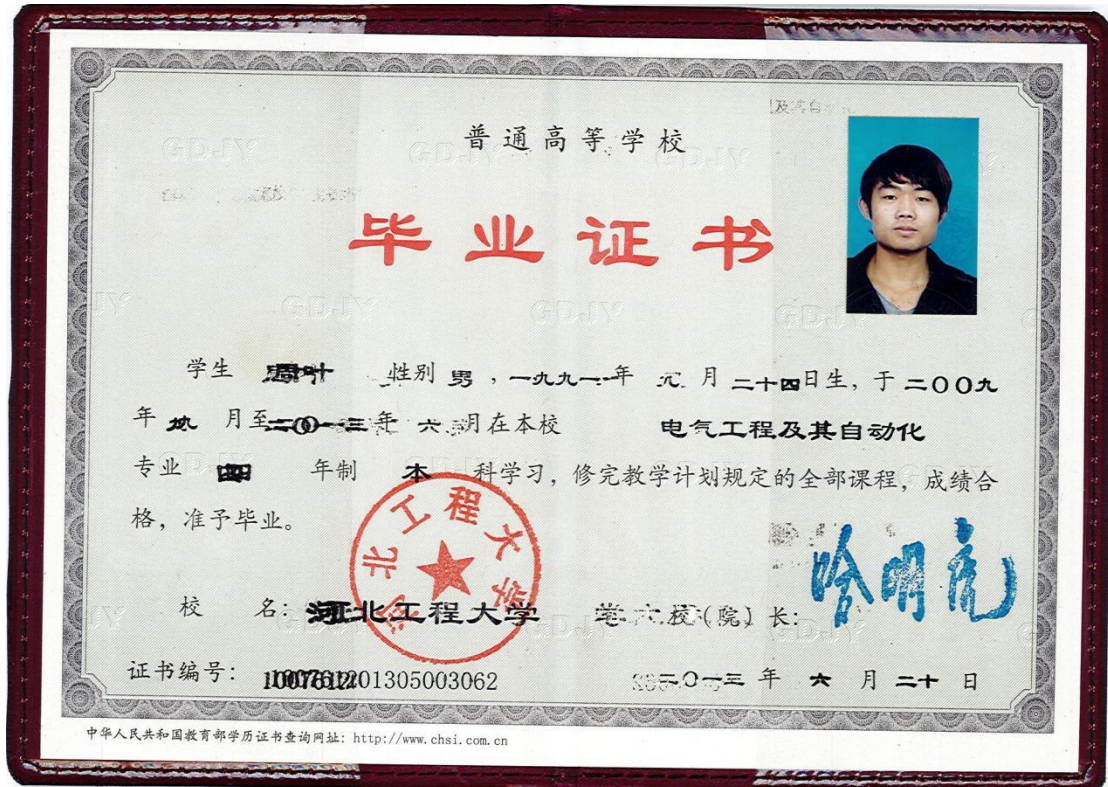 普通高等学校
毕业证书
学生 周叶 性别 男，一九九一年 元 月 二十四日生，于 二00九
年 九 月至二0一三年 六 月在本校 电气工程及其自动化
专业 四 年制 本 科学习，修完教学计划规定的全部课程，成绩合
格，准予毕业。
河北工程大学
校 名：河北工程大学 校（院）长：哈明虎
证书编号： 201305003062 二0一三 年 六 月 二十 日
中华人民共和国教育部学历证书查询网址：http://www.chsi.com.cn
GDJY